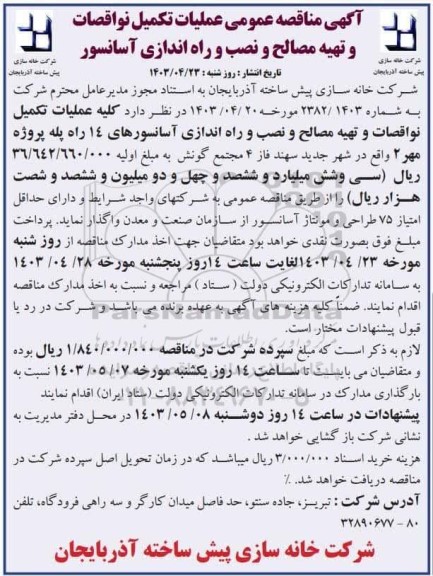 آگهی مناقصه عمومی عملیات تکمیل نواقصات
و تهیه مصالح و نصب و راه اندازی آسانسور
شرکت خانه سازی
پیش ساخته آذربایجان
شرکت خانه سازی
پیش ساخته آذربایجان
تاریخ انتشار : روز شنبه : ۱۴۰۳/۰۴/۲۳
شرکت خانه سازی پیش ساخته آذربایجان به استناد مجوز مدیرعامل محترم شرکت
به شماره ۱۴۰۳ /۲۳۸۲ مورخه ۲۰ /۰۴/ ۱۴۰۳ در نظر دارد کلیه عملیات تکمیل
نواقصات و تهیه مصالح و نصب و راه اندازی آسانسورهای ۱۴ راه پله پروژه
مهر۲ واقع در شهر جدید سهند فاز ۴ مجتمع گونش به مبلغ اولیه ۳۶/۶۴۲/۶۶۰/۰۰۰
ریال (سی وشش میلیارد و ششصد و چهل و دو میلیون و ششصد و شصت
هزار ریال) را از طریق مناقصه عمومی به شرکتهای واجد شرایط و دارای حداقل
امتیاز ۷۵ طراحی و مونتاژ آسانسور از سازمان صنعت و معدن واگذار نماید. پرداخت
مبلغ فوق بصورت نقدی خواهد بود متقاضیان جهت اخذ مدارک مناقصه از روز شنبه
مورخه ۲۳/ ۰۴/ ۱۴۰۳لغایت ساعت ۱۴روز پنجشنبه مورخه ۲۸/ ۰۴ / ۱۴۰۳
به سامانه تدارکات الکترونیکی دولت ( ستاد ) مراجعه و نسبت به اخذ مدارک مناقصه
اقدام نمایند. ضمنا کلیه هزینه های آگهی به عهده برنده می باشد و شرکت در رد یا
قبول پیشنهادات مختار است.
لازم به ذکر است که مبلغ سپرده شرکت در مناقصه ۱/۸۴۰/۰۰۰/۰۰۰ ریال بوده
و متقاضیان می بایست تا ساعت ۱۴ روز یکشنبه مورخه ۰۷/ ۰۵/ ۱۴۰۳ نسبت به
بارگذاری مدارک در سامانه تدارکات الکترونیکی دولت (ستاد ایران) اقدام نمایند
پیشنهادات در ساعت ۱۴ روز دوشنبه ۰۸/ ۰۵/ ۱۴۰۳ در محل دفتر مدیریت به
نشانی شرکت باز گشایی خواهد شد .
هزینه خرید اسناد ۳/۰۰۰/۰۰۰ ریال میباشد که در زمان تحویل اصل سپرده شرکت در
مناقصه دریافت خواهد شد. ٪
آدرس شرکت : تبریز، جاده سنتو، حد فاصل میدان کارگر و سه راهی فرودگاه، تلفن
۸۰ - ۳۲۸۹۰۶۷۷
شرکت خانه سازی پیش ساخته آذربایجان